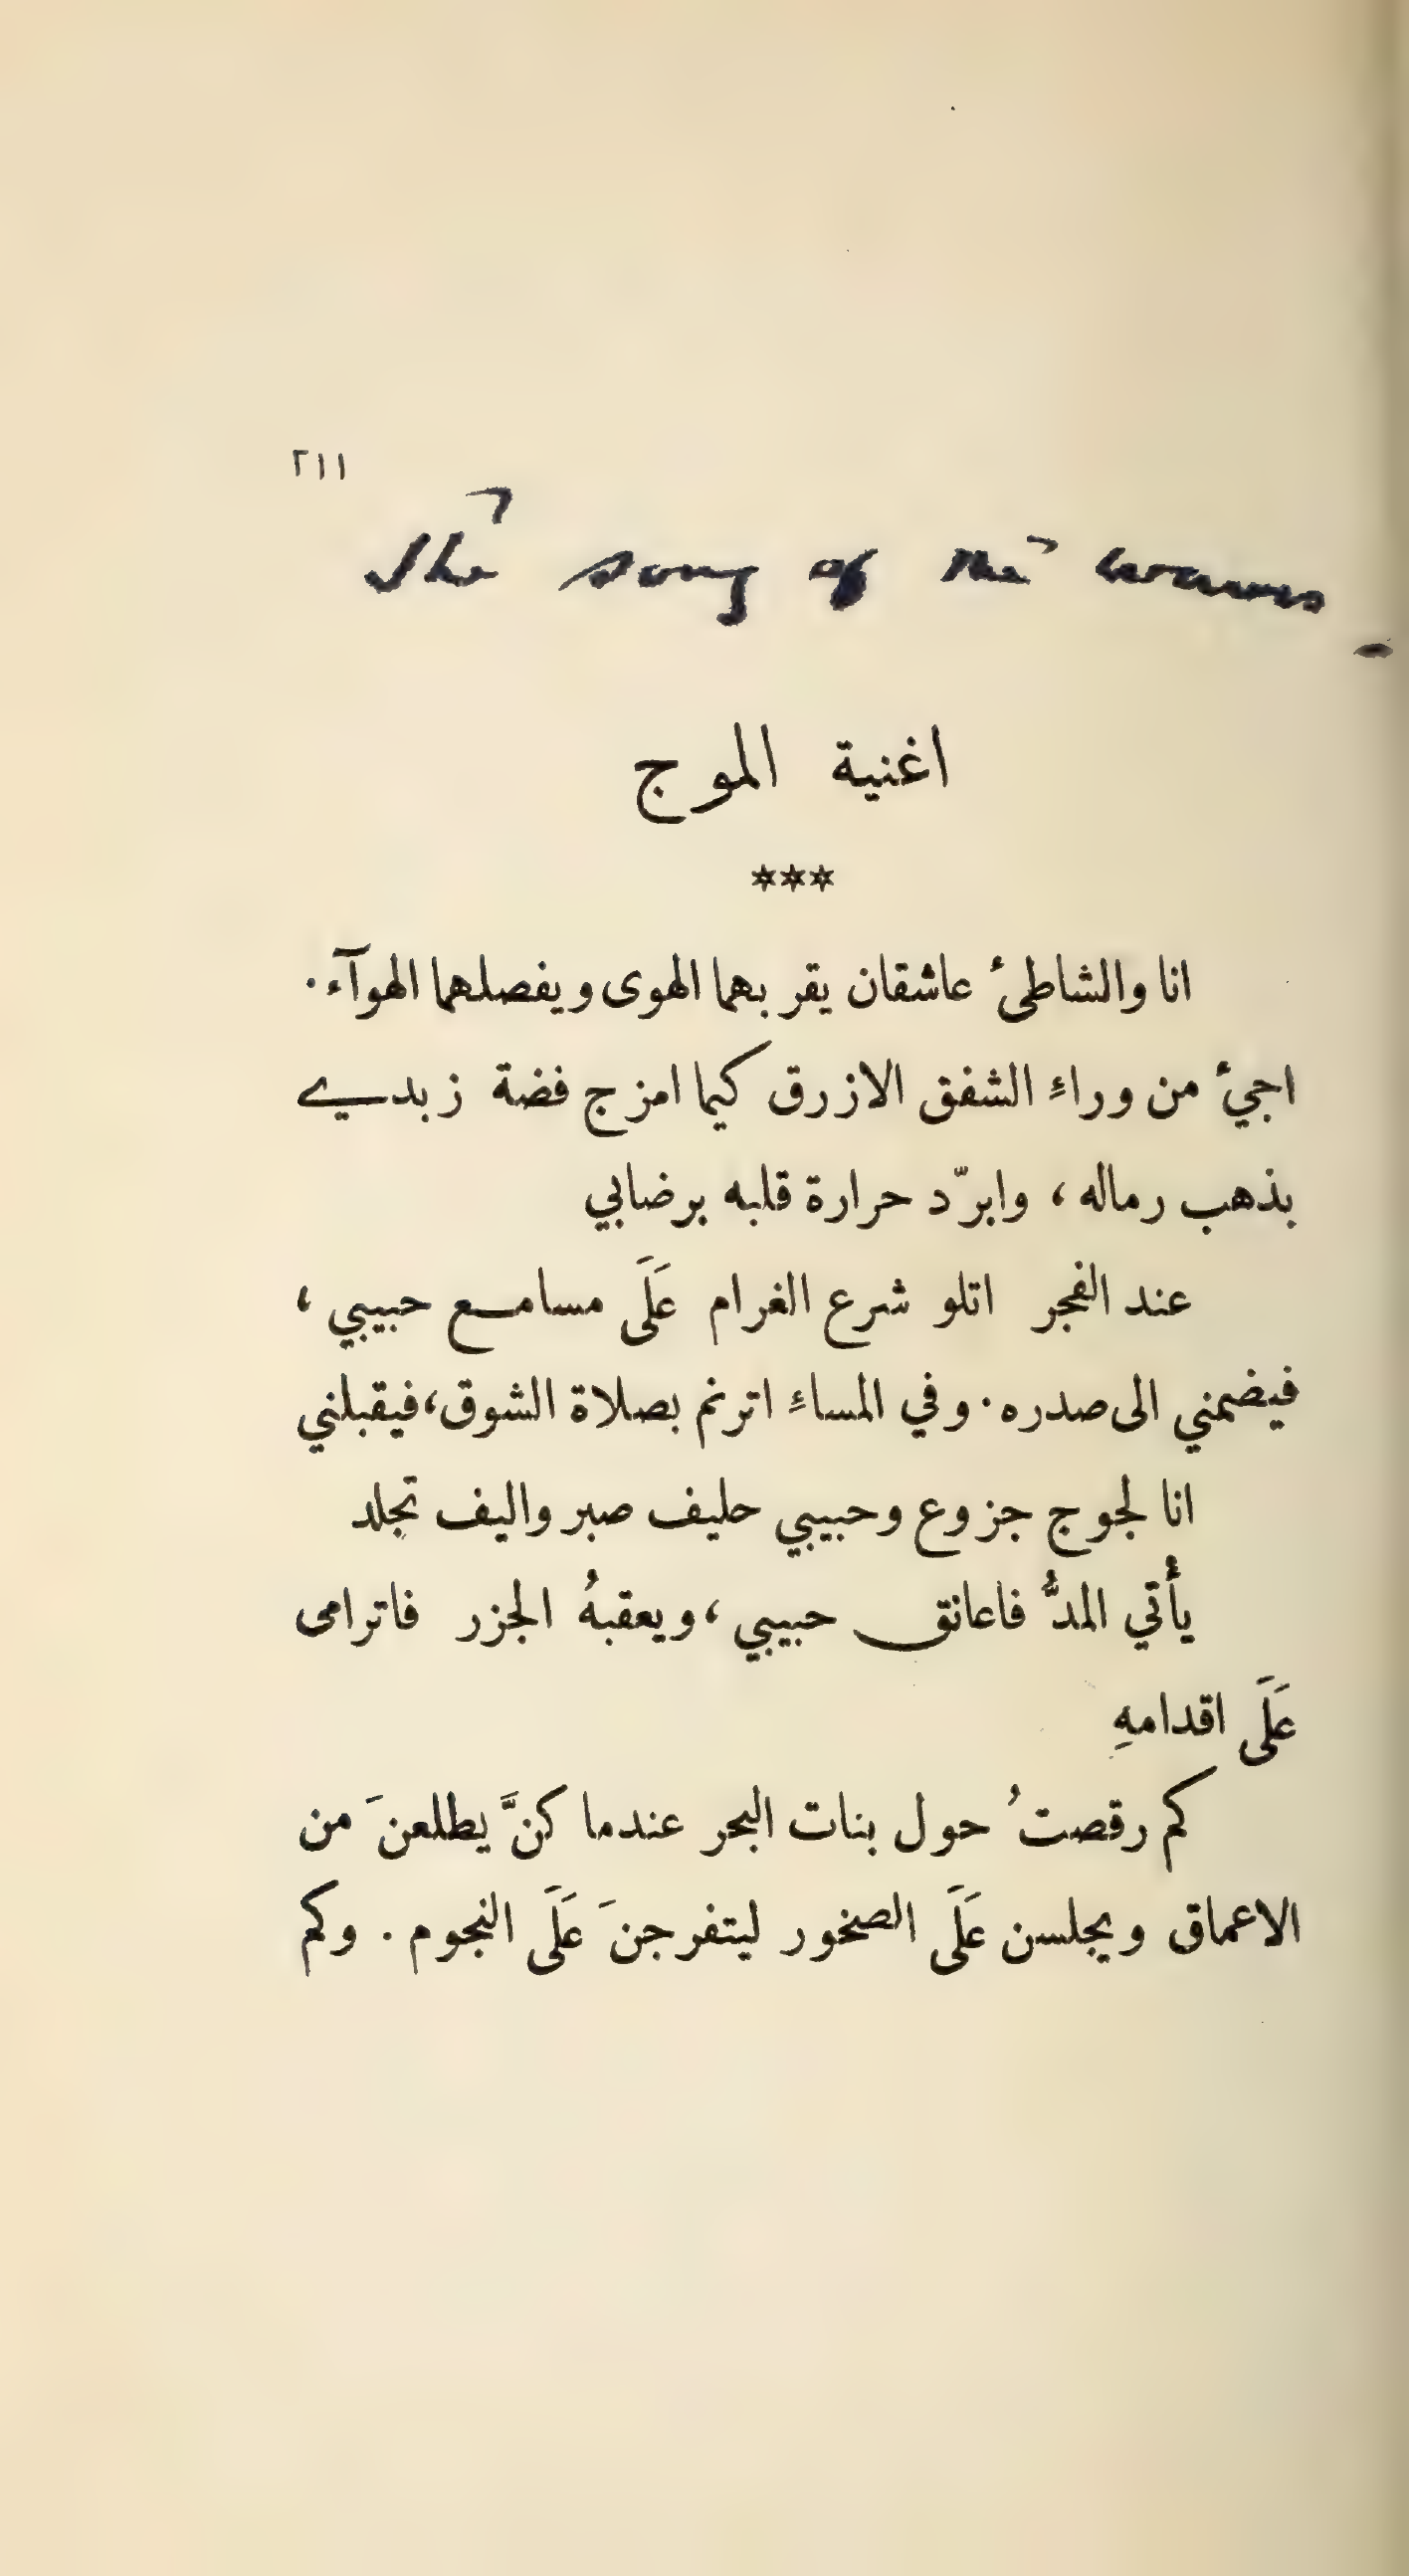 ٢١١
The song of the waves
اغنية الموج
***
انا والشاطئُ عاشقان يقربهما الهوى ويفصلهما الهوآء.
اجيُّ من وراءِ الشفق الازرق كيما امزج فضة زبدي
بذهب رماله، وابرّد حرارة قلبه برضابي
عند الفجر اتلو شرع الغرام عَلَى مسامع حبيبي،
فيضمني الى صدره. وفي المساءِ اترنم بصلاة الشوق، فيقبلني
انا لجوج جزوع وحبيبي حليف صبر واليف تجلد
يأتي المدُّ فاعانق حبيبي، ويعقبهُ الجزر فاترامى
عَلَى اقدامهِ
كم رقصتُ حول بنات البحر عندما كنَّ يطلعنَ من
الاعماق ويجلسن عَلَى الصخور ليتفرجنَ عَلَى النجوم. وكم